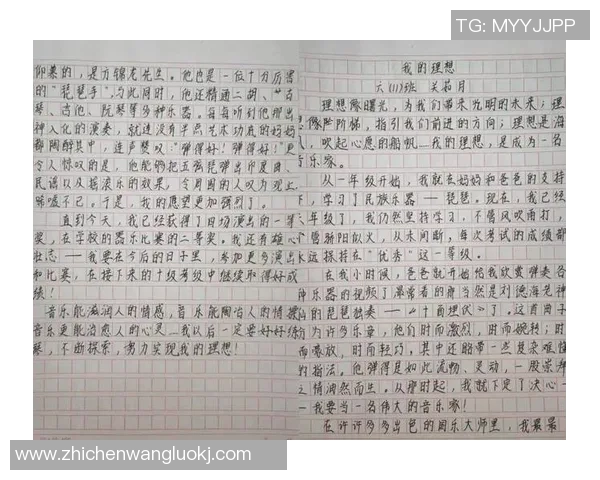 TG: MYYJJPP
我的理想
六(11)班 关茹月
理想像曙光,为我们带来光明的未来;理
像阶梯,指引我们前进的方向;理想是海
,吹起心愿的船帆……我的理想,是成为一名
音乐家。
从一年级开始,我就在妈妈和爸爸的支持
下,学习了民族乐器——琵琶。现在,我已经
年级了,我仍然坚持学习,不管风吹雨打,
管骄阳似火,从未间断,每次考试的成绩都
永远保持在“优秀”这一等级。
在我小时候,爸爸就开始给我欣赏弹奏各
种乐器的视频了,最常看的当然是刘德海老
的琵琶独奏——《十面埋伏》了。这首曲子
为许多乐章,他们时而激烈,时而婉转;时
而奔放,时而轻巧。其中还带一些其杂难
的指法。他弹得是如此流畅、灵动,一股崇拜
之情油然而生。从那时起,我就下定了决心—
—我要当一名伟大的音乐家!
在许许多多出色的国乐大师里,我最最
仰慕的,是方锦龙先生。他也是一位十分厉害
的“琵琶手”,与此同时,他还精通二胡、古
琴、吉他、阮琴等多种乐器。每每听到他那出
神入化的演奏,就连没有半点艺术功底的妈妈
都陶醉其中,连声赞叹:“弹得好!弹得好!”更
令人惊叹的是,他能够把五弦琵琶弹出印度曲、
民谣以及摇滚乐的效果,令周围的人叹为观止
唏嘘不已。于是,我的愿望更加强烈了。
直到今天,我已经获得了日场演出的一等
奖,在学校的器乐比赛的二等奖。我还有雄心
壮志——我要在今后的日子里,参加更多演出
和比赛,在接下来的十级考级中继续取得好成
绩!
音乐能滋润人的情感,音乐能陶冶人的情操
音乐更能治愈人的心灵……我以后一定要好好练
琴,不断探索,努力实现我的理想!
www.zhichenwangluokj.com